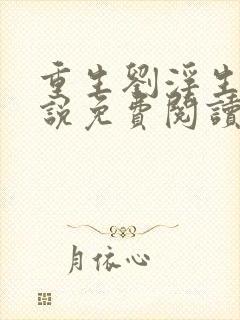 重生劉淫生
說免費閱讀
月依心